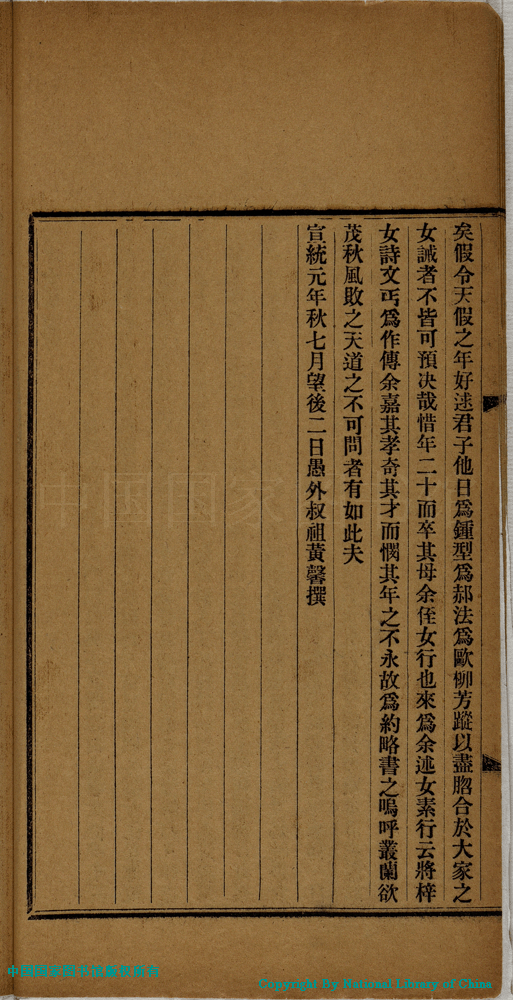 矣假令天假之年好逑君子他日爲鍾型爲郝法爲歐柳芳蹤以盡脗合於大家之
女誡者不皆可預决哉惜年二十而卒其母余侄女行也來爲余述女素行云將梓
女詩文丐爲作傳余嘉其孝奇其才而憫其年之不永故爲約略書之嗚呼叢蘭欲
茂秋風敗之天道之不可問者有如此夫
宣統元年秋七月望後二日愚外叔祖黃馨撰
中国国家图书馆版权所有
Copyright By National Library of China